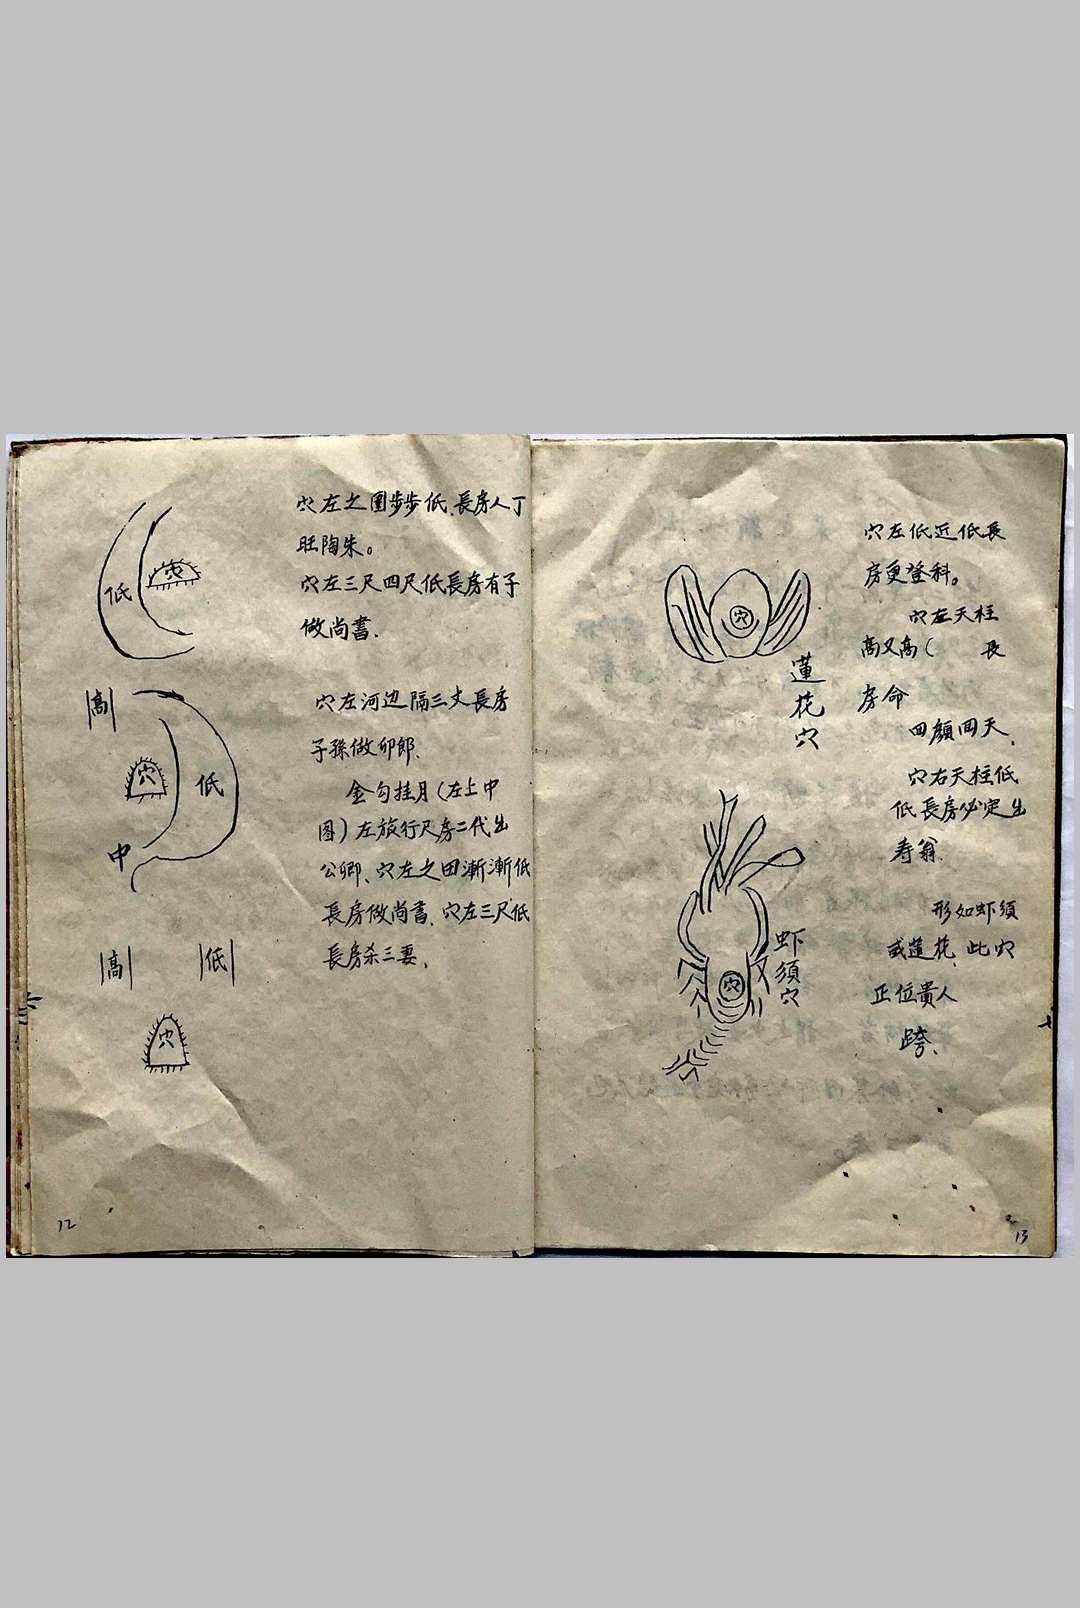 穴左之圍步步低、長房人丁
旺陶朱。
穴左三尺四尺低長房有子
做尚書.
低
穴
穴左河边隔三丈長房
子孫做卯郎.
金勾挂月(左上中
图)左旅行尺房二代出
公卿、穴左之田漸漸低
長房做尚書、穴左三尺低
長房杀三妻.
高
穴
低
中
高
低
穴
12
穴左低近低長
房更登科。
穴左天柱
高又高( 長
房命
四顏回天.
穴右天柱低
低長房必定出
寿翁.
形如虾須
或莲花、此穴
正位貴人
跨.
穴
蓮花穴
穴
虾須穴
13